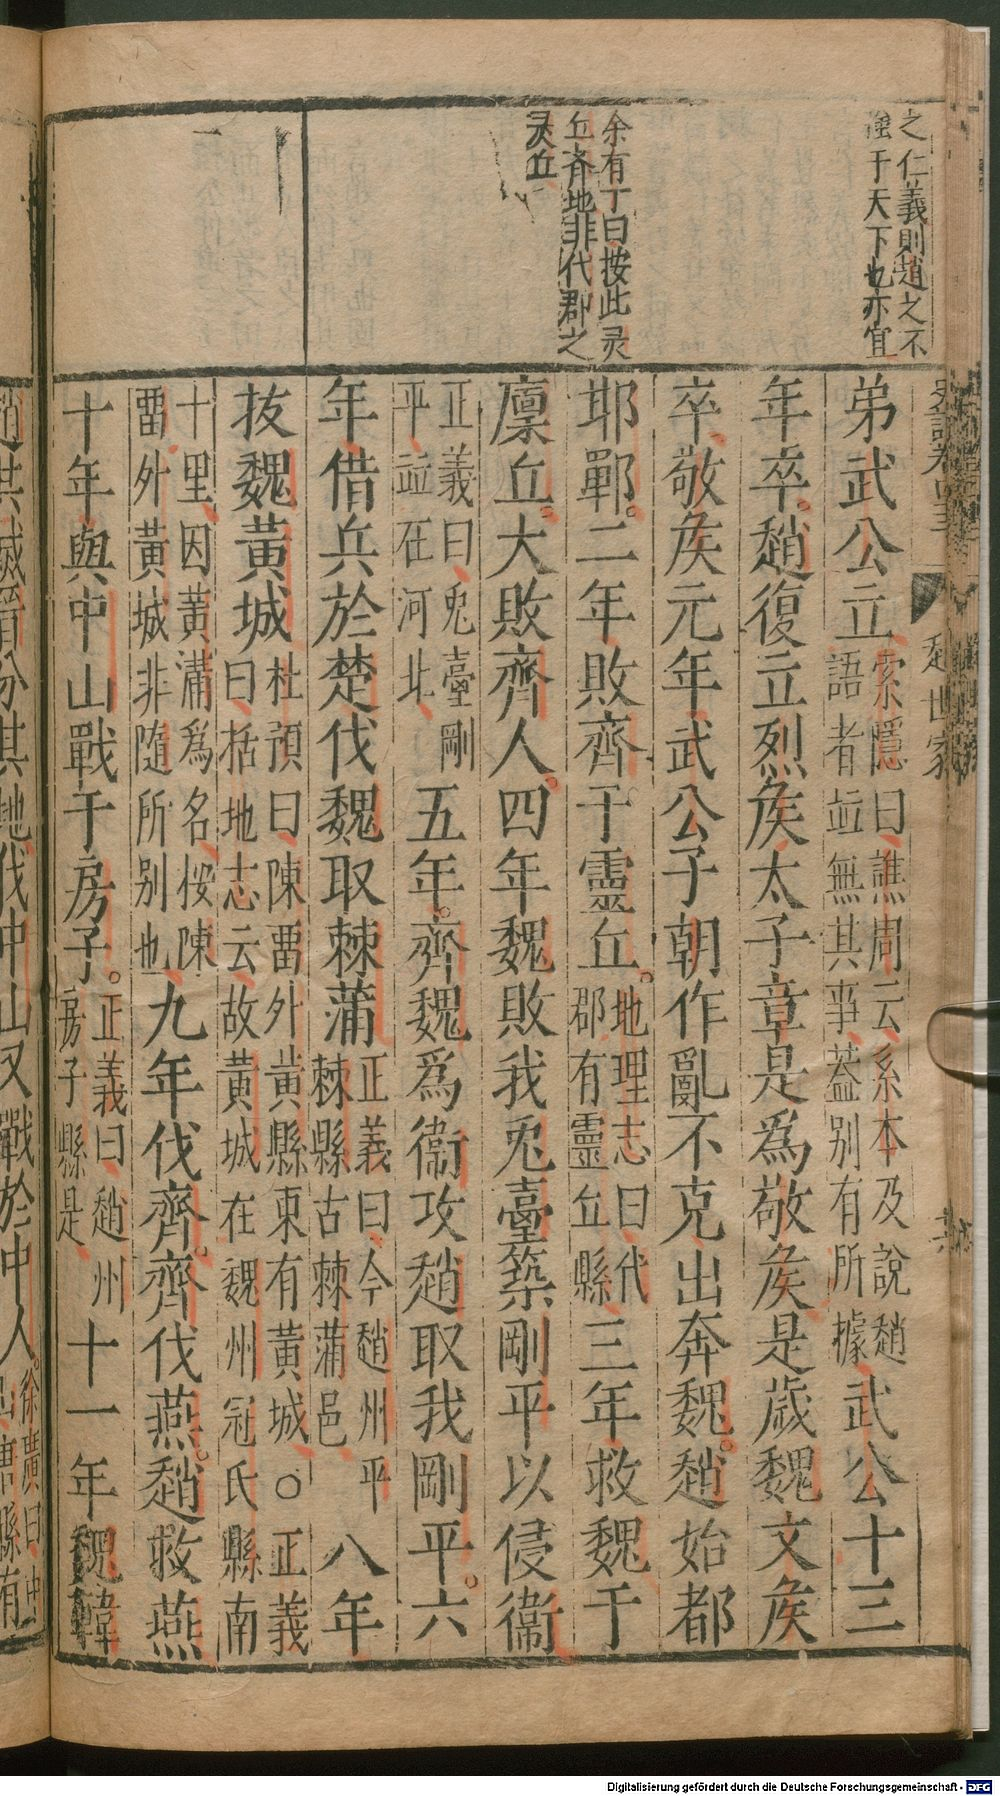 之仁義則趙之不
強于天下也亦宜
余有丁曰按此灵
丘齊地非代郡之
灵丘
弟武公立索隱曰譙周云系本及說趙語者並無其事蓋別有所據武公十三
年卒。趙復立烈侯太子章是爲敬侯是歲魏文侯
卒敬侯元年武公子朝作亂不克出奔魏。趙始都
邯鄲。二年敗齊于靈丘。地理志曰代郡有靈丘縣三年救魏于
廩丘。大敗齊人。四年魏敗我兎臺築剛平以侵衞
正義曰兎臺剛平並在河北五年。齊魏爲衞攻趙取我剛平。六
年借兵於楚伐魏取棘蒲正義曰今趙州平棘縣古棘蒲邑八年
拔魏黃城杜預曰陳畱外黃縣東有黃城○正義曰括地志云故黃城在魏州冠氏縣南
十里因黃溝爲名按陳畱外黃城非隨所別也九年伐齊。齊伐燕。趙救燕
十年與中山戰于房子。正義曰趙州房子縣是十一年魏韓
史記卷四三
趙世家
趙共滅晉分其地伐中山又戰於中人。徐廣曰中